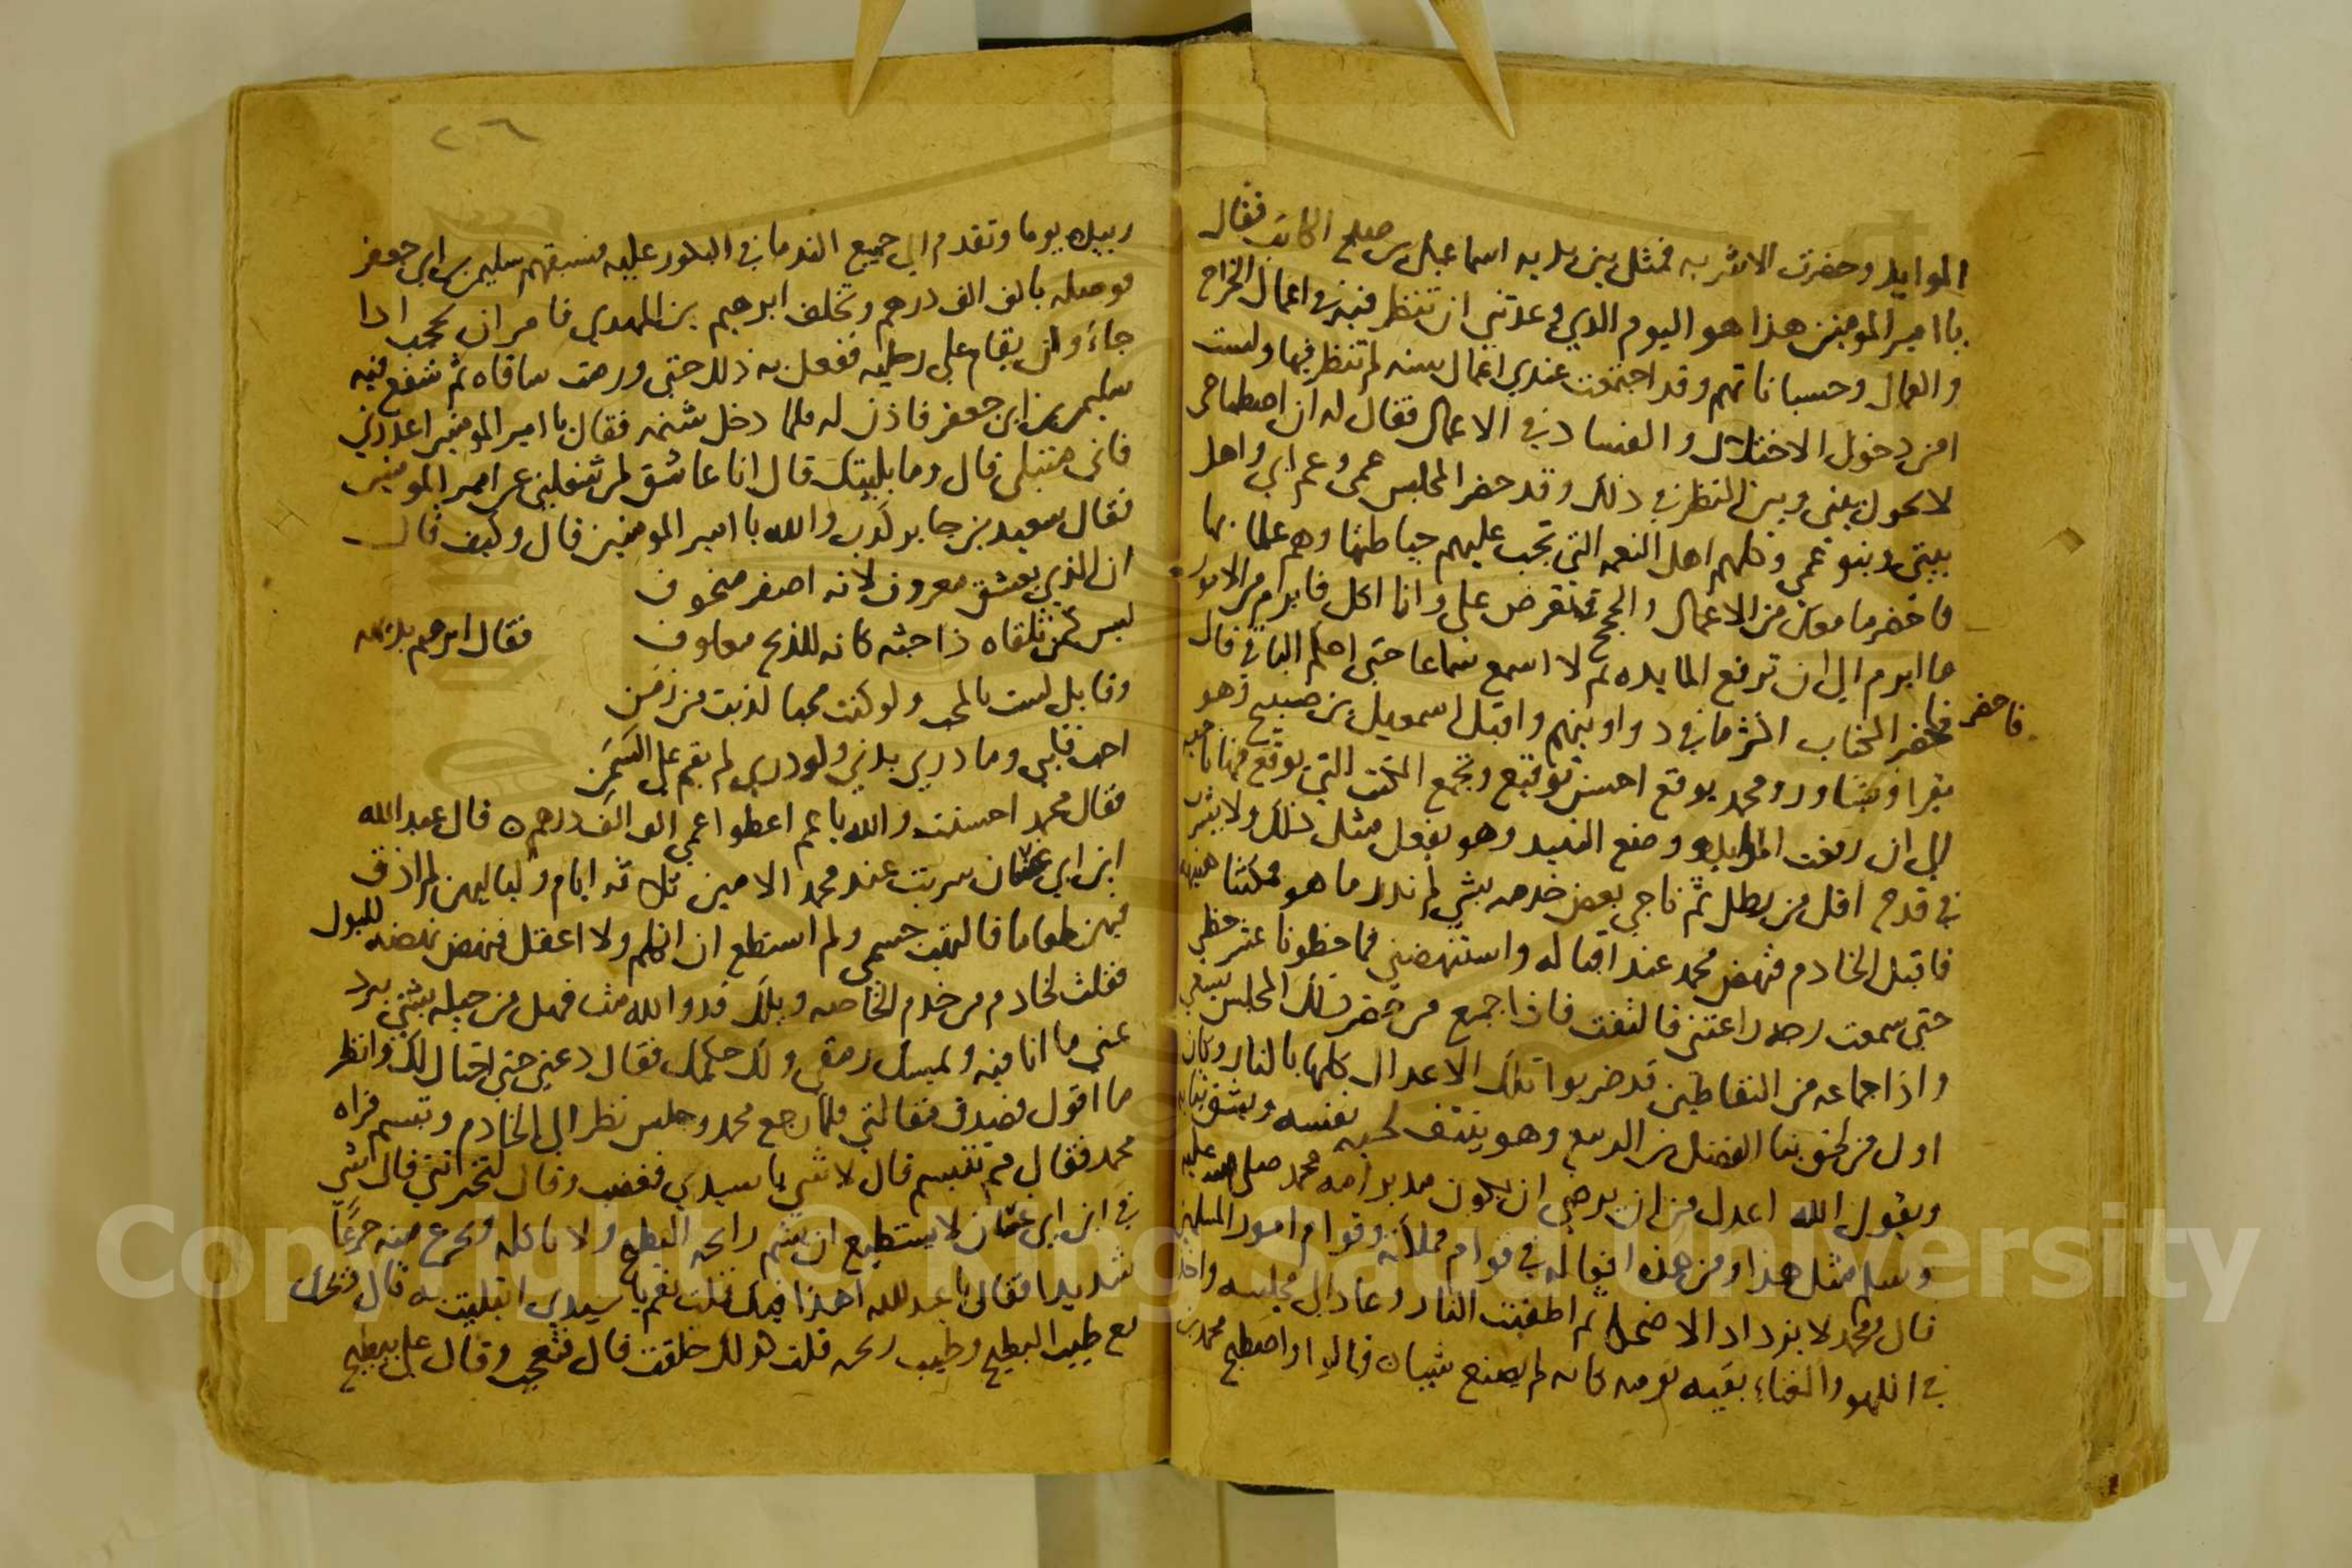 الموايد وحضرت الاشربه فمثل بين يديه اسماعيل بن صبيح الكاتب فقال
يا امير المومنين هذا هو اليوم الذي وعدتني ان تنظر فيه في اعمال الخراج
والعمال وحسباناتهم وقد اجتمعت عندي اعمال سنه لم تنظر فيها ولست
امن دخول الاختلال والفساد في الاعمال فقال له ان اصطباحي
لا يحول بيني وبين النظر في ذلك وقد حضر المجلس عمي وعم ابي واهل
بيتي وبنو عمي وكلهم اهل النعمه التي تجب عليهم حياطتها وهم علما بها
فاحضر ما معك من الاعمال والحجج فتعرض علي وانا اكل فابرم من الامور
ما ابرم الي ان ترفع المايده ثم لا اسمع سماعا حتي احكم الباقي قال
فاحضر
فحضر الكتاب اكثر ما في دواوينهم واقبل اسمعيل بن صبيح وهو
يقرا ويشاور ومحمد يوقع احسن توقيع وتجمع الكتب التي يوقع فيها ناحيه
الي ان رفعت الموايد ووضع النبيد وهو يفعل مثل ذلك ولا يشرب
في قدح اقل من رطل ثم ناجي بعض خدمه بشي لم ندر ما هو فمكثنا هنيهه
فاقبل الخادم فنهض محمد عند اقباله واستنهضني فما خطونا عشر خطي
حتي سمعت رجه راعتني فالتفت فاذا جميع من حضر ذلك المجلس يسعي
واذا جماعه من النفاطين قد ضربوا تلك الاعدال كلها بالنار وكان
اول من لحق بنا الفضل بن الربيع وهو ينتف لحيته بنفسه ويشق ثيابه
ويقول الله اعدل من ان يرضي ان يكون مدبر امه محمد صلي الله عليه
وسلم مثل هذا ومن هذه افعاله في قوام مملكته وقوام امور المسلمين
قال ومحمد لا يزداد الا ضحكا ثم اطفيت النار وعاد الي مجلسه واخذ
في اللهو والغناء بقيه يومه كانه لم يصنع شيا قال واصطبح محمد بن
٢٠٦
زبيده يوما وتقدم الي جميع الندما في البكور عليه فسبقهم سليمن بن ابي جعفر
فوصله بالف الف درهم وتخلف ابرهيم بن المهدي فامر ان يحجب اذا
جاء وان يقام علي رجليه ففعل به ذلك حتي ورمت ساقاه ثم شفع فيه
سليمن بن ابي جعفر فاذن له فلما دخل شتمه فقال يا امير المومنين اعذرني
فاني مبتلي قال وما بليتك قال انا عاشق لمن شغلني عن امير المومنين
فقال سعيد بن جابر كذب والله يا امير المومنين قال وكيف قال
ان الذي يعشق معروف لانه اصفر منحوف
ليس كمن تلقاه ذا جثه كانه للذبح معلوف فقال ابرهيم بديهه
وقايل لست بالمحب ولو كنت محبا لذبت من زمن
احب قلبي وما دري بدني ولو دري لم يقم علي السمن
فقال محمد احسنت والله يا عم اعطوا عمي الف الف درهم قال عبد الله
ابن ابي غسان شربت عند محمد الامين ثلاثه ايام ولياليهن لم اذق
فيهن طعاما فالتهب جسمي ولم استطع ان اتكلم ولا اعقل فنهض نهضه للبول
فقلت لخادم من خدم الخاصه ويلك قد والله مت فهل من حيله بشي يبرد
عني ما انا فيه ويمسك رمقي ولك حكمك فقال دعني حتي احتال لك وانظر
ما اقول فصدق مقالتي فلما رجع محمد وجلس نظر الي الخادم وتبسم فراه
محمد فقال مم تتبسم قال لا شي يا سيدي فغضب وقال لتخبرنني قال شي
في ابن ابي غسان لا يستطيع ان يشم رايحه البطيخ ولا ياكله ويجزع منه جزعا
شديدا فقال يا عبد الله اهذا فيك قلت نعم يا سيدي ابتليت به قال ويحك
مع طيب البطيخ وطيب ريحه قلت كذلك خلقت قال فتعجب وقال علي ببطيخ
Copyright © King Saud University